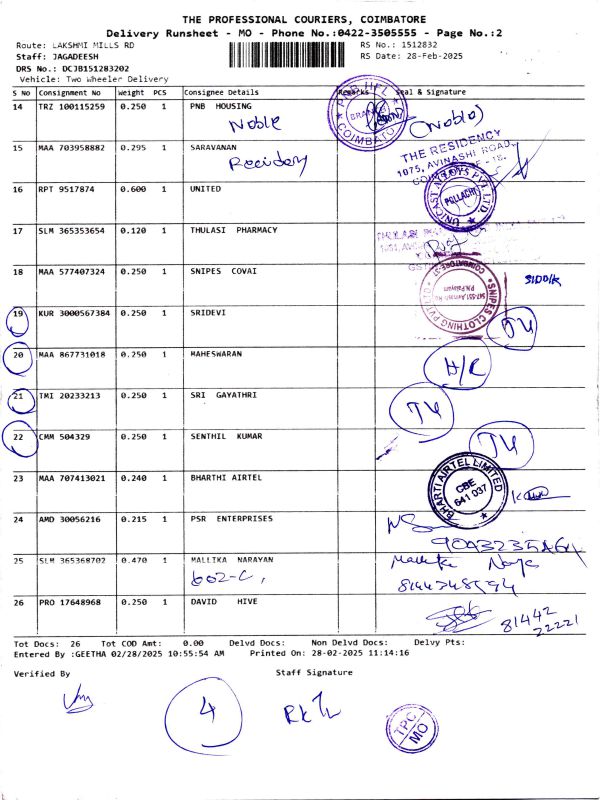 THE PROFESSIONAL COURIERS, COIMBATORE
Delivery Runsheet - MO - Phone No.:0422-3505555 - Page No.:2
Route: LAKSHMI MILLS RD RS No.: 1512832
Staff: JAGADEESH RS Date: 28-Feb-2025
DRS No.: DCJB151283202
Vehicle: Two Wheeler Delivery
S No Consignment No Weight PCS Consignee Details Remarks Seal & Signature
14 TRZ 100115259 0.250 1 PNB HOUSING
Noble (Noble)
PNB HFL BRANCH COIMBATORE
15 MAA 703958882 0.295 1 SARAVANAN
Recidency
THE RESIDENCY
1075, AVINASHI ROAD,
16 RPT 9517874 0.600 1 UNITED
UNICAST ALLOYS PVT. LTD. POLLACHI
17 SLM 365353654 0.120 1 THULASI PHARMACY
18 MAA 577407324 0.250 1 SNIPES COVAI
SNIPES CLOTHING PVT LTD COIMBATORE-37
SIDDIK
19 KUR 3000567384 0.250 1 SRIDEVI
20 MAA 867731018 0.250 1 MAHESWARAN
H/C
21 TMI 20233213 0.250 1 SRI GAYATHRI
22 CMM 504329 0.250 1 SENTHIL KUMAR
23 MAA 707413021 0.240 1 BHARTHI AIRTEL
BHARTI AIRTEL LIMITED CBE 641 037
24 AMD 30056216 0.215 1 PSR ENTERPRISES
25 SLM 365368702 0.470 1 MALLIKA NARAYAN
602-C,
26 PRO 17648968 0.250 1 DAVID HIVE
81442
22221
Tot Docs: 26 Tot COD Amt: 0.00 Delvd Docs: Non Delvd Docs: Delvy Pts:
Entered By :GEETHA 02/28/2025 10:55:54 AM Printed On: 28-02-2025 11:14:16
Verified By Staff Signature
4
TPC MO